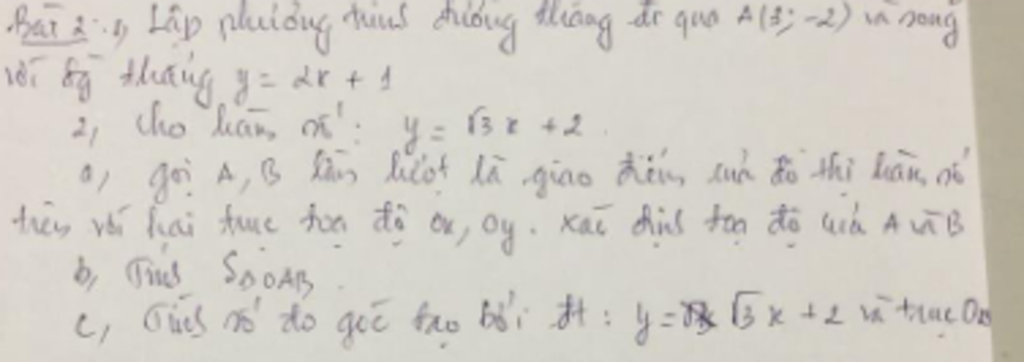 Bài 2: 1, Lập phương trình đường thẳng đi qua A(3; -2) và song
với đg thẳng y = 2x + 1
2, Cho hàm số: y = √3 x + 2
a, gọi A, B lần lượt là giao điểm của đồ thị hàm số
trên với hai trục toạ độ Ox, Oy. Xác định toạ độ của A và B
b, Tính S△OAB
c, Tính số đo góc tạo bởi đt: y = √3 x + 2 và trục Ox